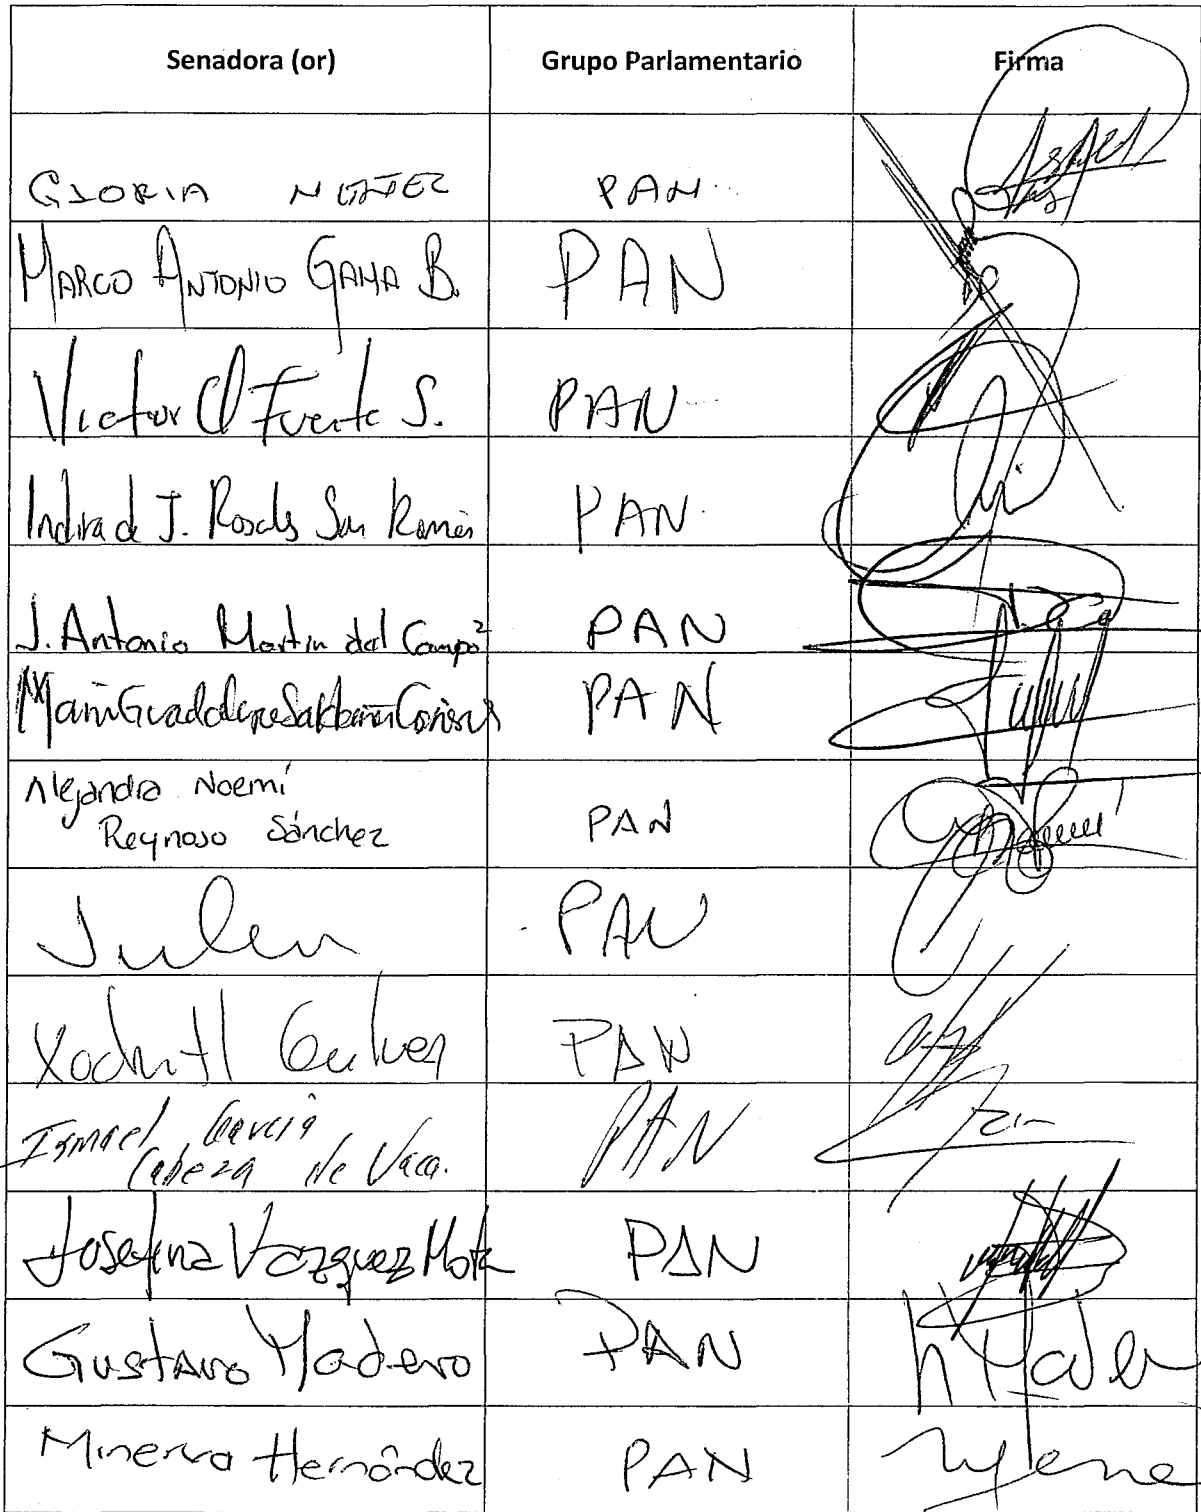 Senadora (or) Grupo Parlamentario Firma
GLORIA NUÑEZ PAN
MARCO ANTONIO GAMA B. PAN
Victor O Fuente S. PAN
Indira de J. Rosales San Román PAN
J. Antonio Martin del Campo PAN
María Guadalupe Saldaña Cisneros PAN
Alejandra Noemí
Reynoso Sánchez PAN Noemí
Julen PAN
Xochitl Galvez PAN
Ismael García
Cabeza de Vaca. PAN
Josefina Vazquez Mota PAN
Gustavo Madero PAN
Minerva Hernández PAN